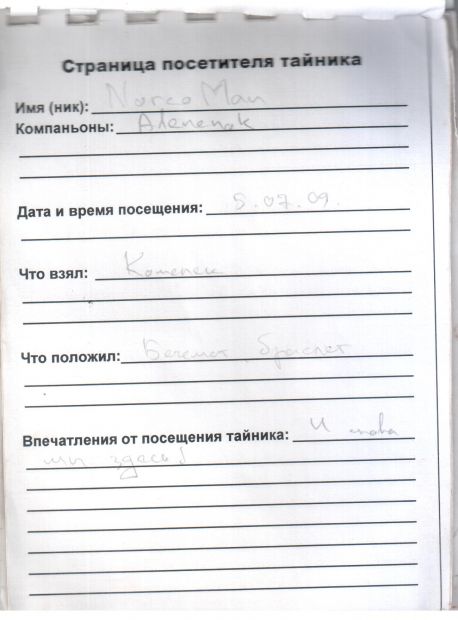 Страница посетителя тайника
Имя (ник): NarcoMan
Компаньоны: Alenenok
Дата и время посещения: 5.07.09.
Что взял:
Что положил: Бегемот, браслет
Впечатления от посещения тайника: И снова
мы здесь!